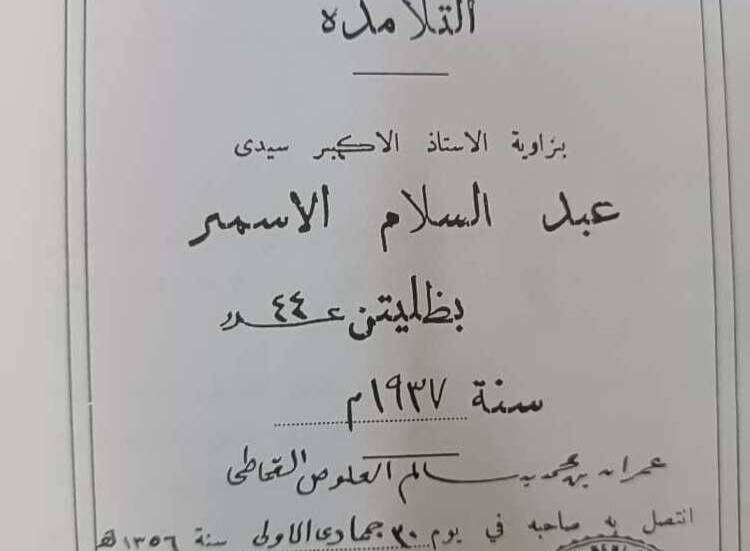 التلامذه
بزاوية الاستاذ الاكبر سيدى
عبد السلام الاسمر
بظليتن عدد ٤٤
سنة ١٩٣٧م
عمران بن محمد بن سالم العلوص القحاطى
اتصل به صاحبه في يوم ٣٠ جمادى الاولى سنة ١٣٥٦ ه